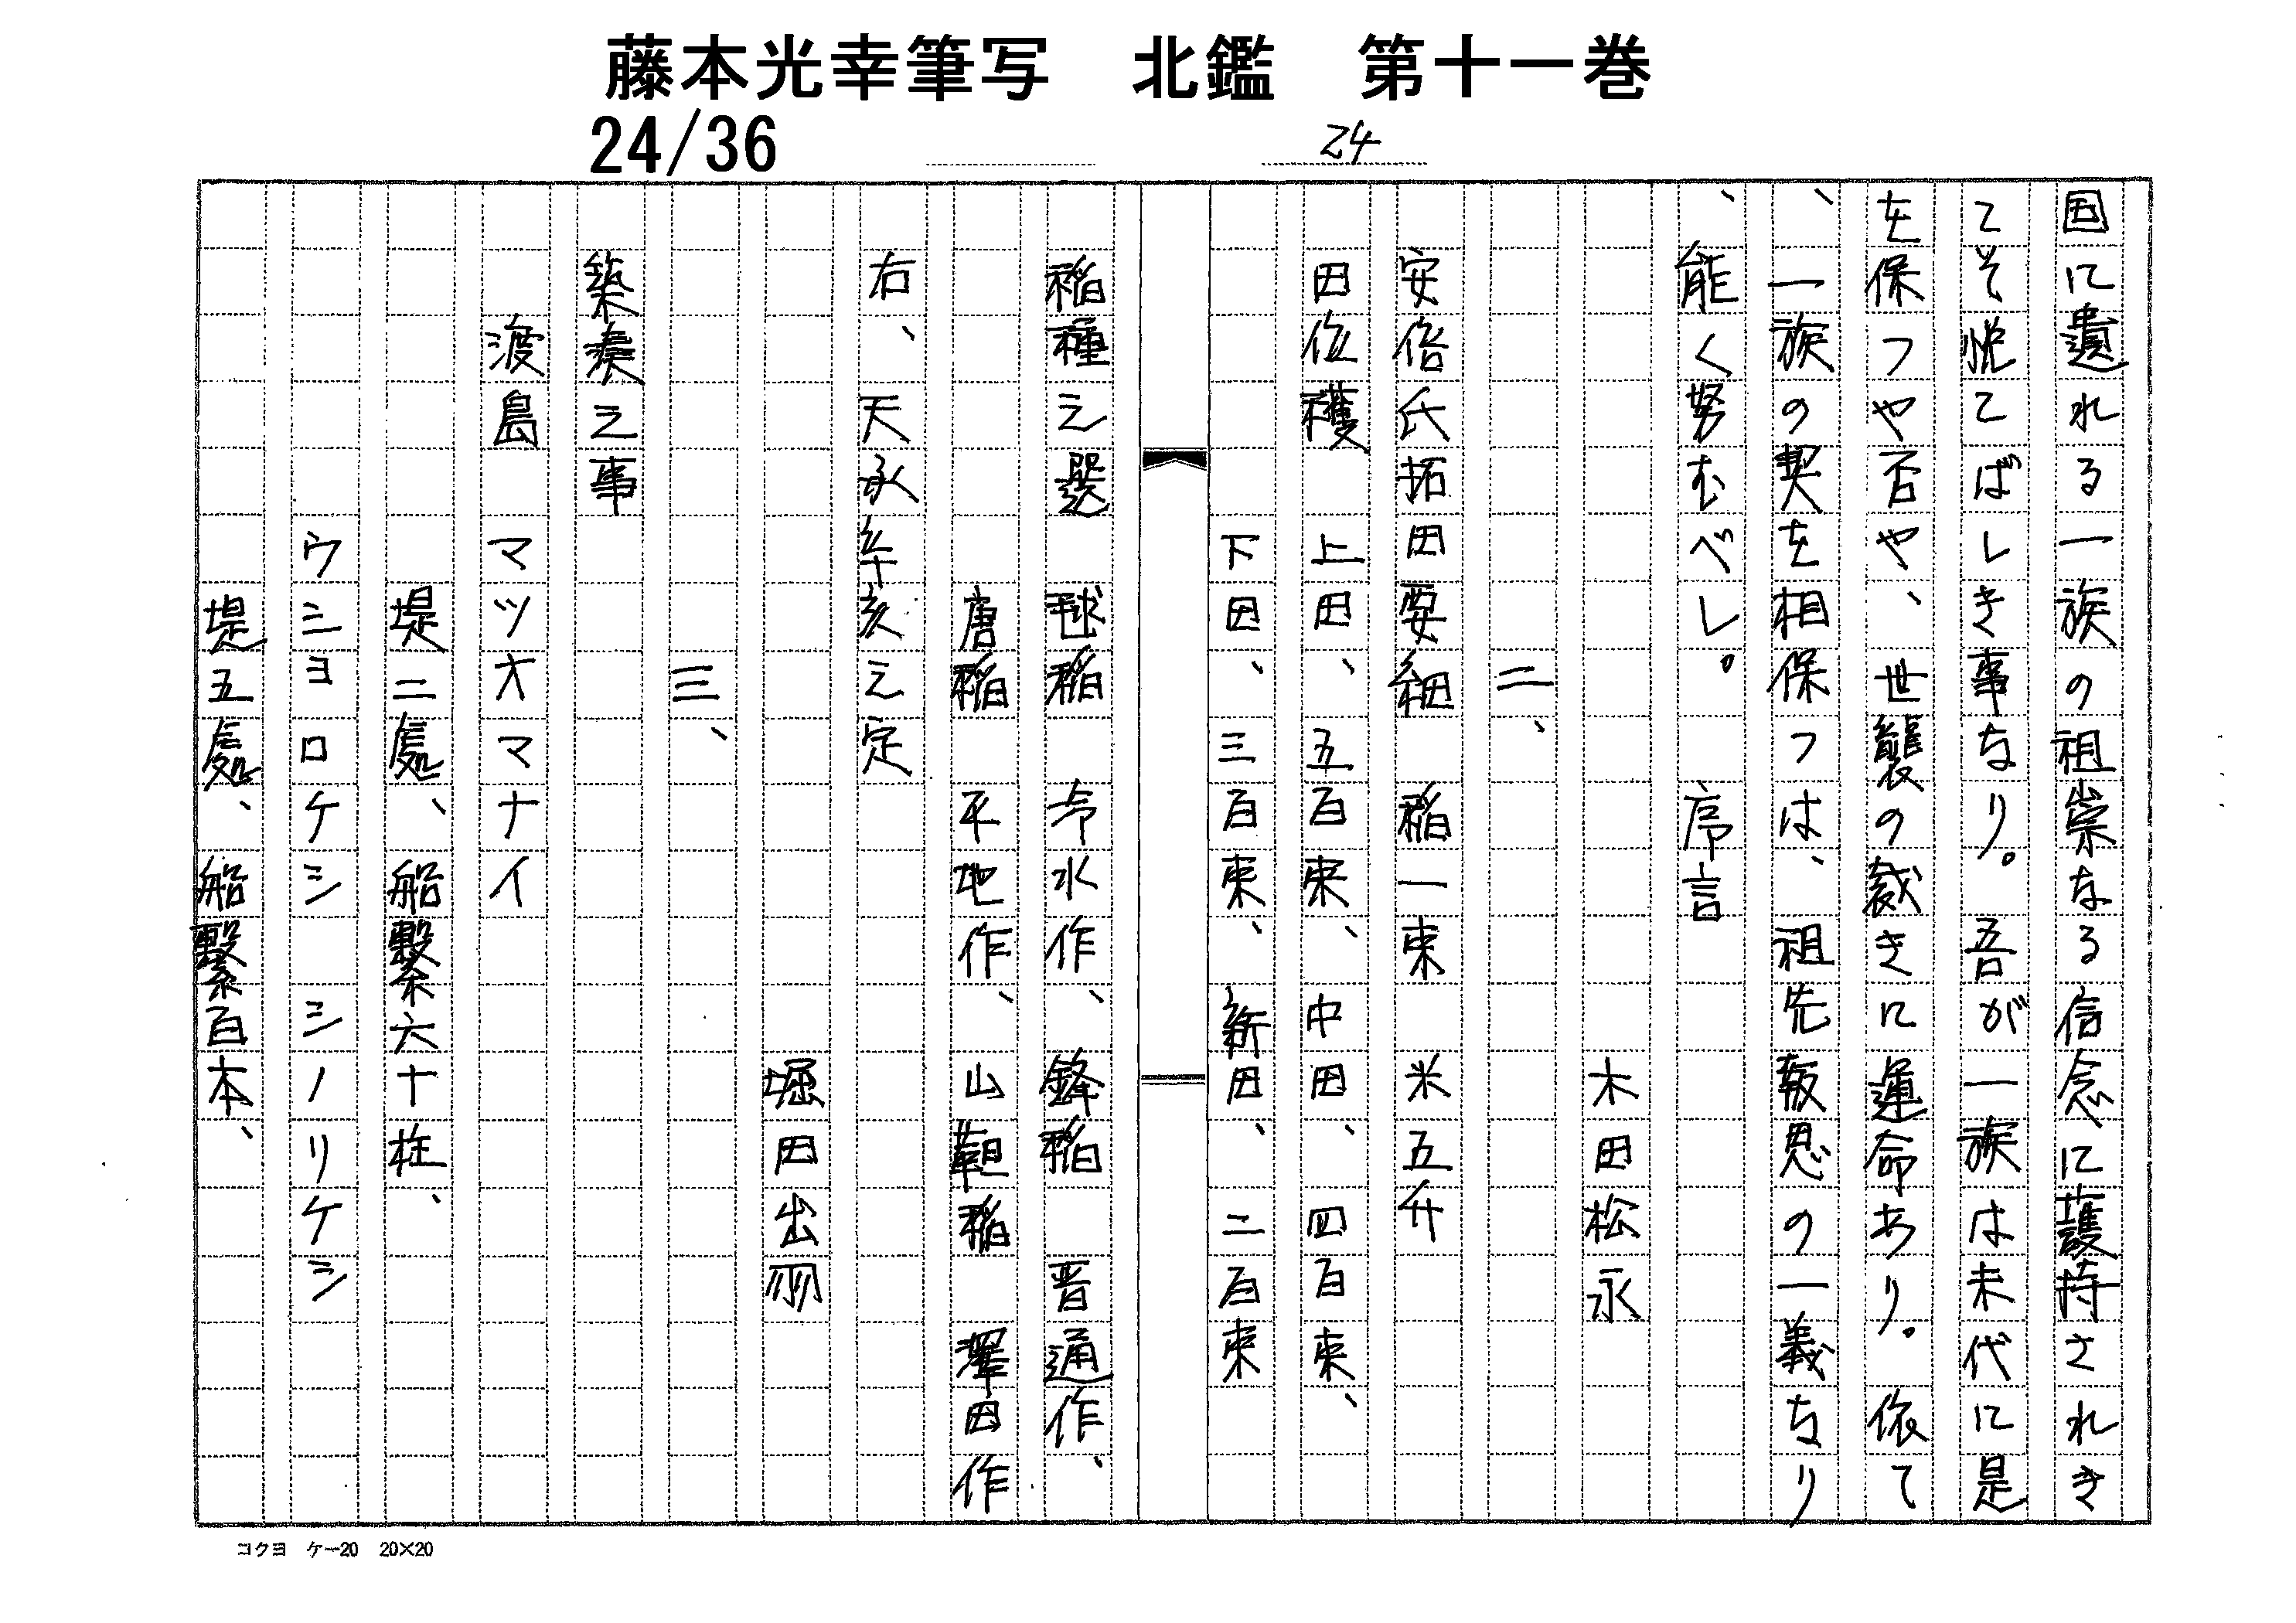 藤本光幸筆写　北鑑　第十一巻
24/36
24
国に遺れる一族の祖崇なる信念に護持されき
てそ悦てばしき事なり。吾が一族は未代に是
を保つや否や、世襲の裁きに運命あり。依て
、一族の契を相保つは、祖先報恩の一義なり
、能く努むべし。　序言
木田松永
二、
安倍氏拓田要細　稲一束　米五升
田位穫　上田、五百束、中田、四百束、
下田、三百束、新田、二百束
稲種之選　毬稲　冷水作、鋒稲　普通作、
唐稲　平地作、山靼稲　澤田作
右、天永辛亥之定
堀田出羽
三、
築湊之事
渡島　マツオマナイ
堤二處、船繋六十柱、
ウショロケシ　シノリケシ
堤五處、船繋百本、
コクヨ　ケー20　20×20